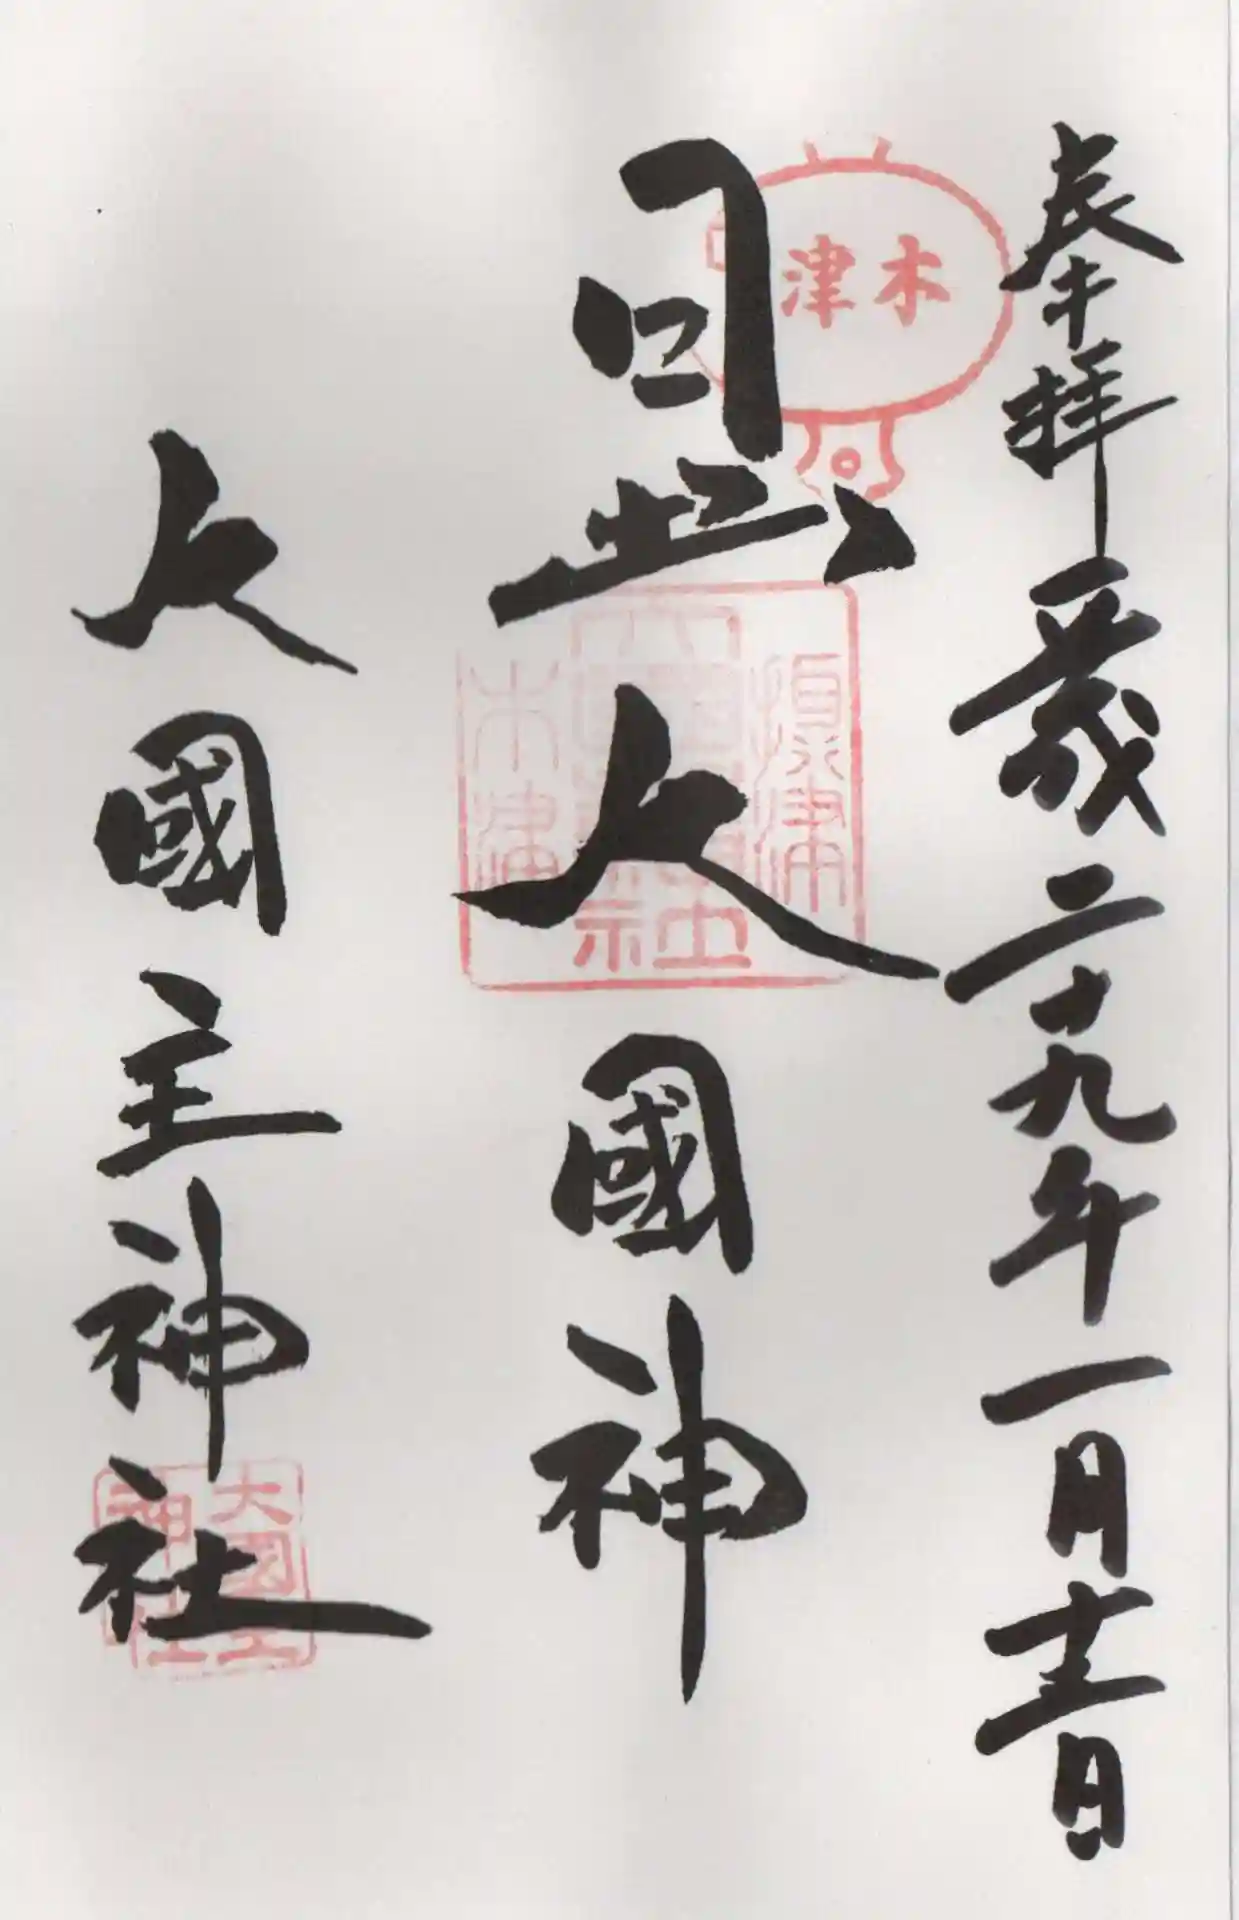 奉拝
平成二十九年一月十三日
木津
日出大國神
大国主神社
木津
大國主神社
大国主神社